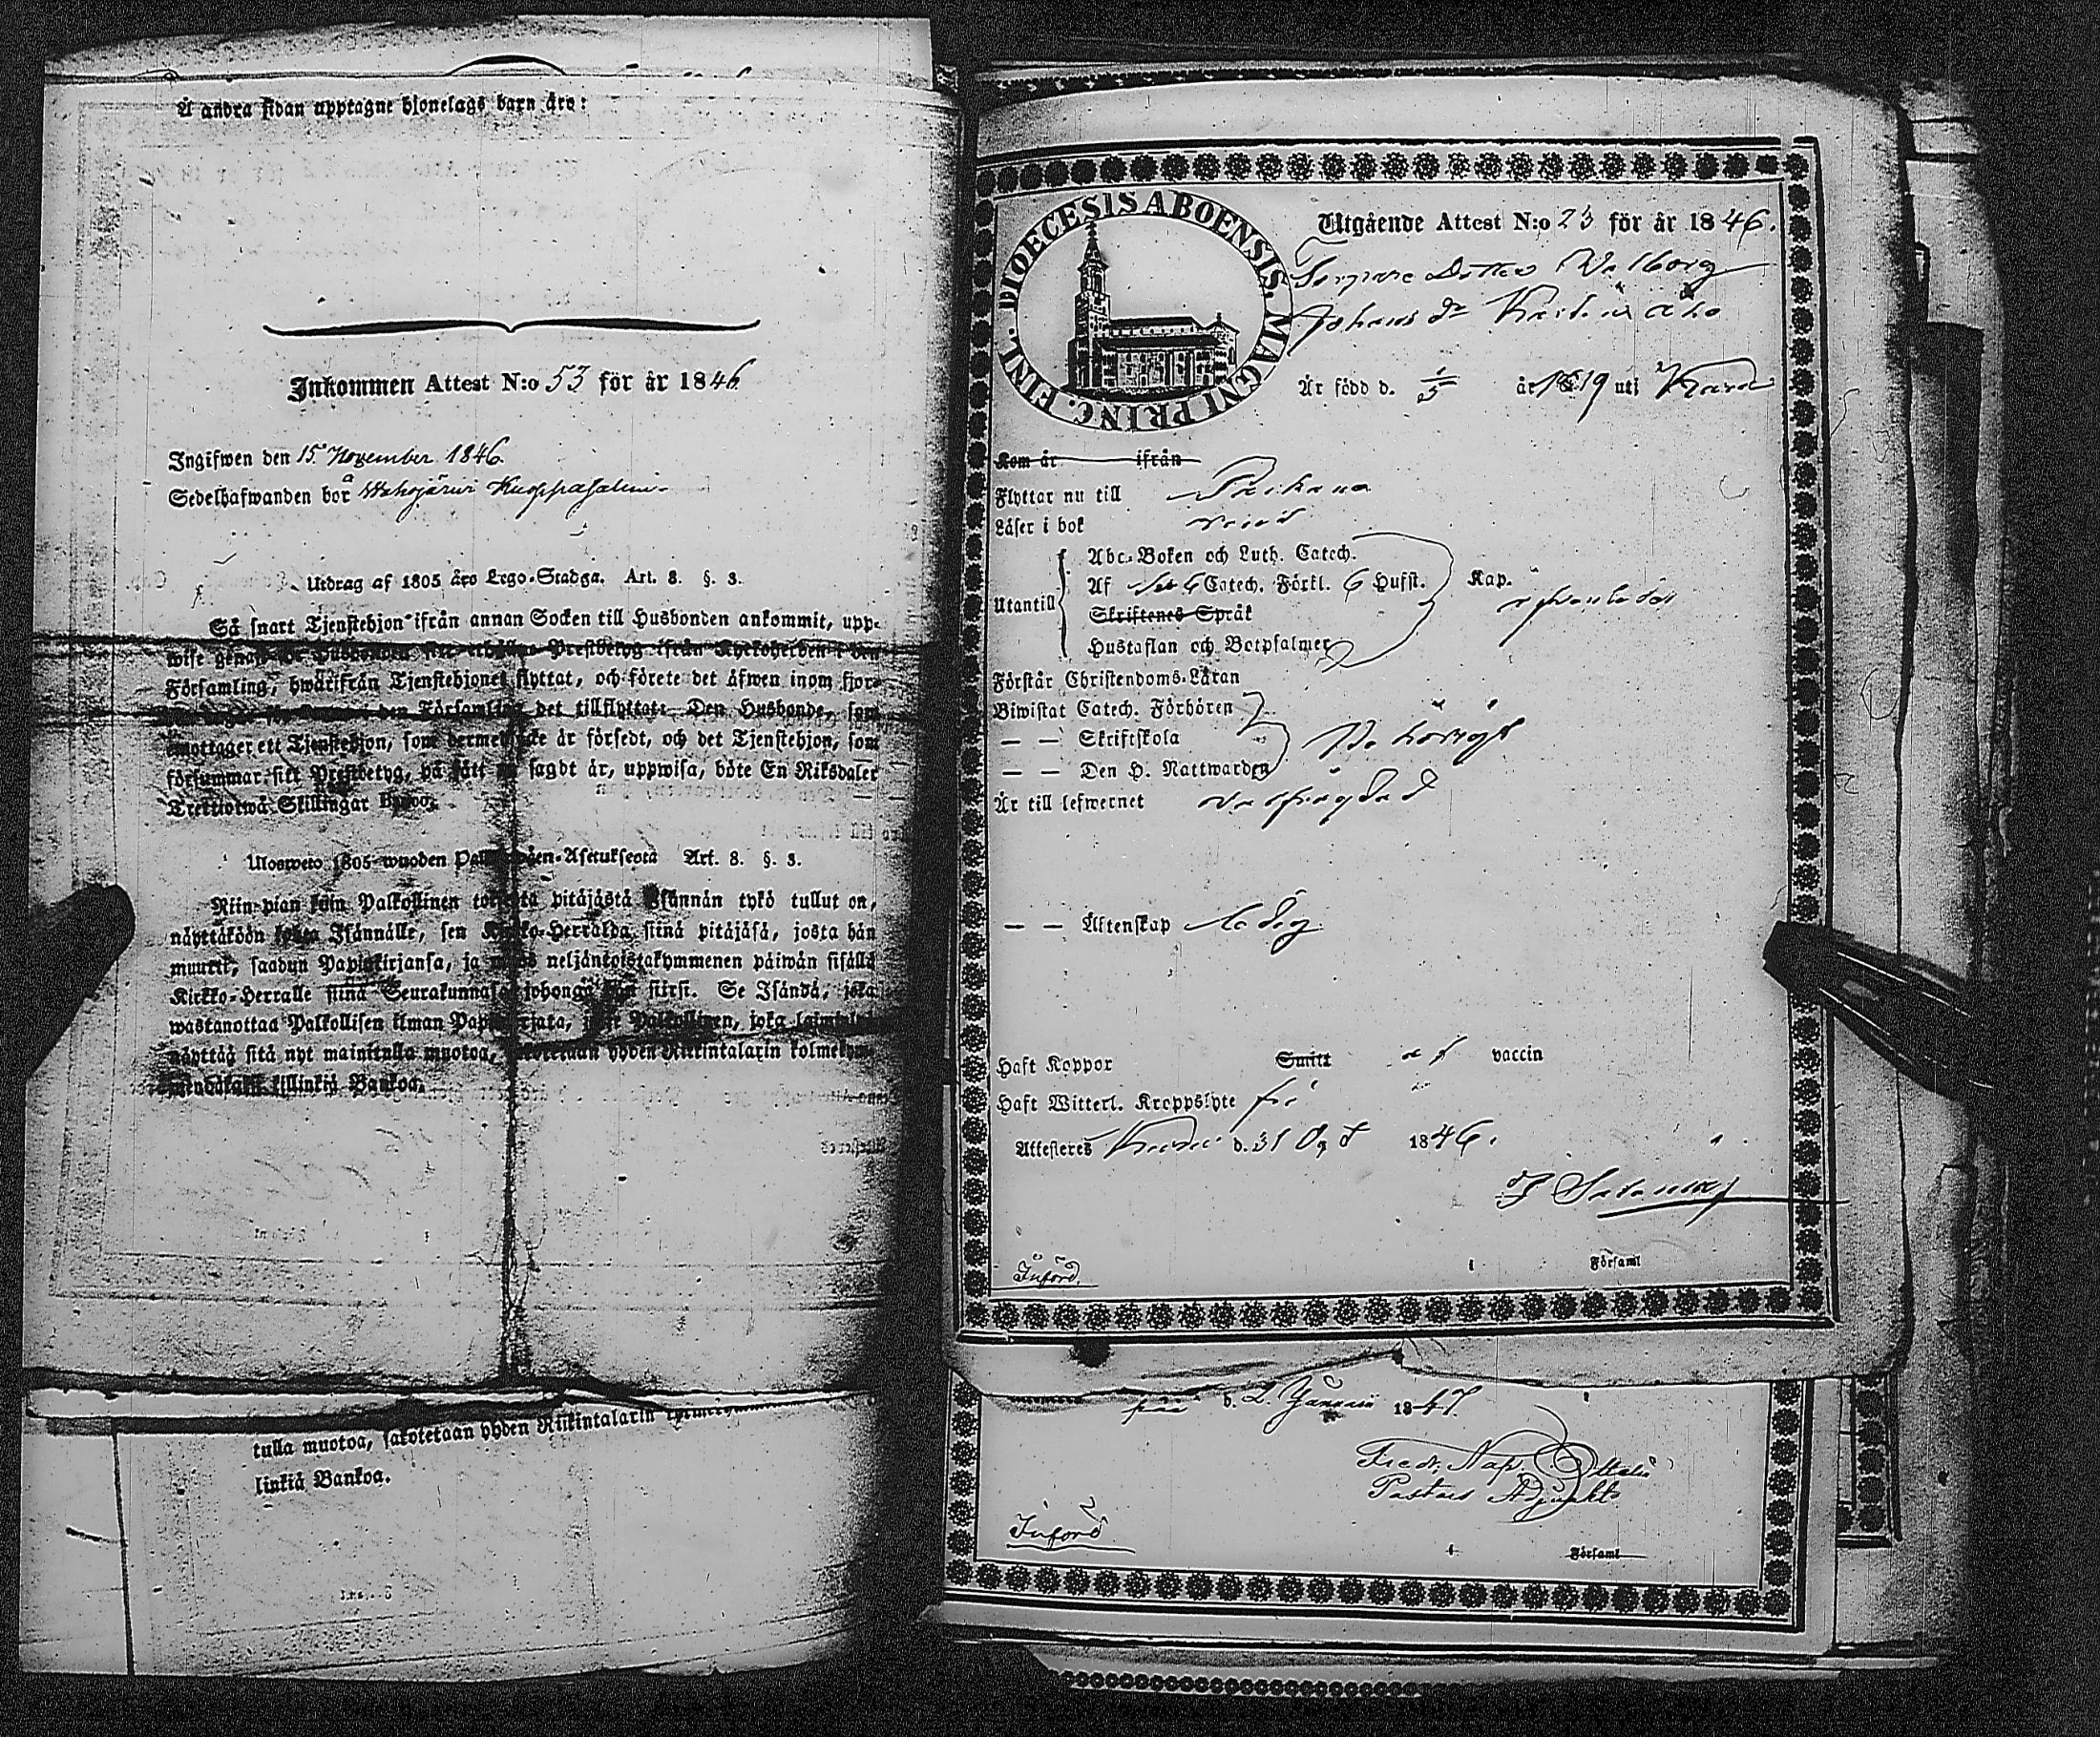 Å andra sidan upptagne hjonelags barn äro:
Inkommen Attest N:o 53 för år 1846
Ingifwen den 15 November 1846.
Sedelhafwanden bor å Wahojärwi Kuoppasalmi
Utdrag af 1805 års Lego-Stadga. Art. 8. §. 3.
Så snart Tjenstehjon ifrån annan Socken till Husbonden ankommit, upp-
wise genast Husbonden Prestbetyg ifrån Kyrkoherden i den
Församling, hwarifrån Tjenstehjonet flyttat, och förete det äfwen inom fjor-
den Församling det tillflyttat. Den Husbonde, som
emottager ett Tjenstehjon, som dermed icke är försedt, och det Tjenstehjon, som
försummar sitt Prestbetyg, på sätt nu sagdt är, uppwisa, böte En Riksdaler
Trettiotwå Skillingar Banco.
Uloswéto 1805 wuoden Palkollisten-Asetuksesta Art. 8. §. 3.
Niin pian kuin Palkollinen toisesta pitäjästä Isännän tykö tullut on,
näyttäköön kohta Isännälle, sen Kirkko-Herralda siinä pitäjäsä, josta hän
muutti, saadun Papinkirjansa, ja myös neljäntoistakymmenen päiwän sisällä
Kirkko-Herralle siinä Seurakunnasa johonga hän siirsi. Se Isändä, joka
wastanottaa Palkollisen ilman Papinkirjata, Palkollinen, joka laiminlyö
näyttää sitä nyt mainitulla muotoa, sakotetaan yhden Riikintalarin kolmekym-
mendäkaksi killinkiä Bankoa.
tulla muotoa, sakotetaan yhden Riikintalarin kolmekymmen
linkiä Bankoa.
DIOECESIS ABOENSIS. MAGNI PRINC. FINL.
Utgående Attest N:o 23 för år 1846.
Dotter Walborg
Johans dr
Är född d. 1/5 år 1819 uti
Kom år ifrån
Flyttar nu till
Läser i bok
Utantill
Abc-Boken och Luth. Catech.
Af Catech. Förkl. 6 Hufst. Kap.
Skriftenes Språk
Hustaflan och Botpsalmer
Förstår Christendoms-Läran
Biwistat Catech. Förhören
— — Skriftskola Behörigt
— — Den H. Nattwarden
Är till lefwernet
— — Äktenskap Ledig
Haft Koppor Smitt af vaccin
Haft Witterl. Kroppslyte fri
Attesteres d. 31 Oct 1846.
Införd. i Församl
d. 2 Januari 1847.
Fredr. Nap.
Pastors Adjunkt
Införd i Församl